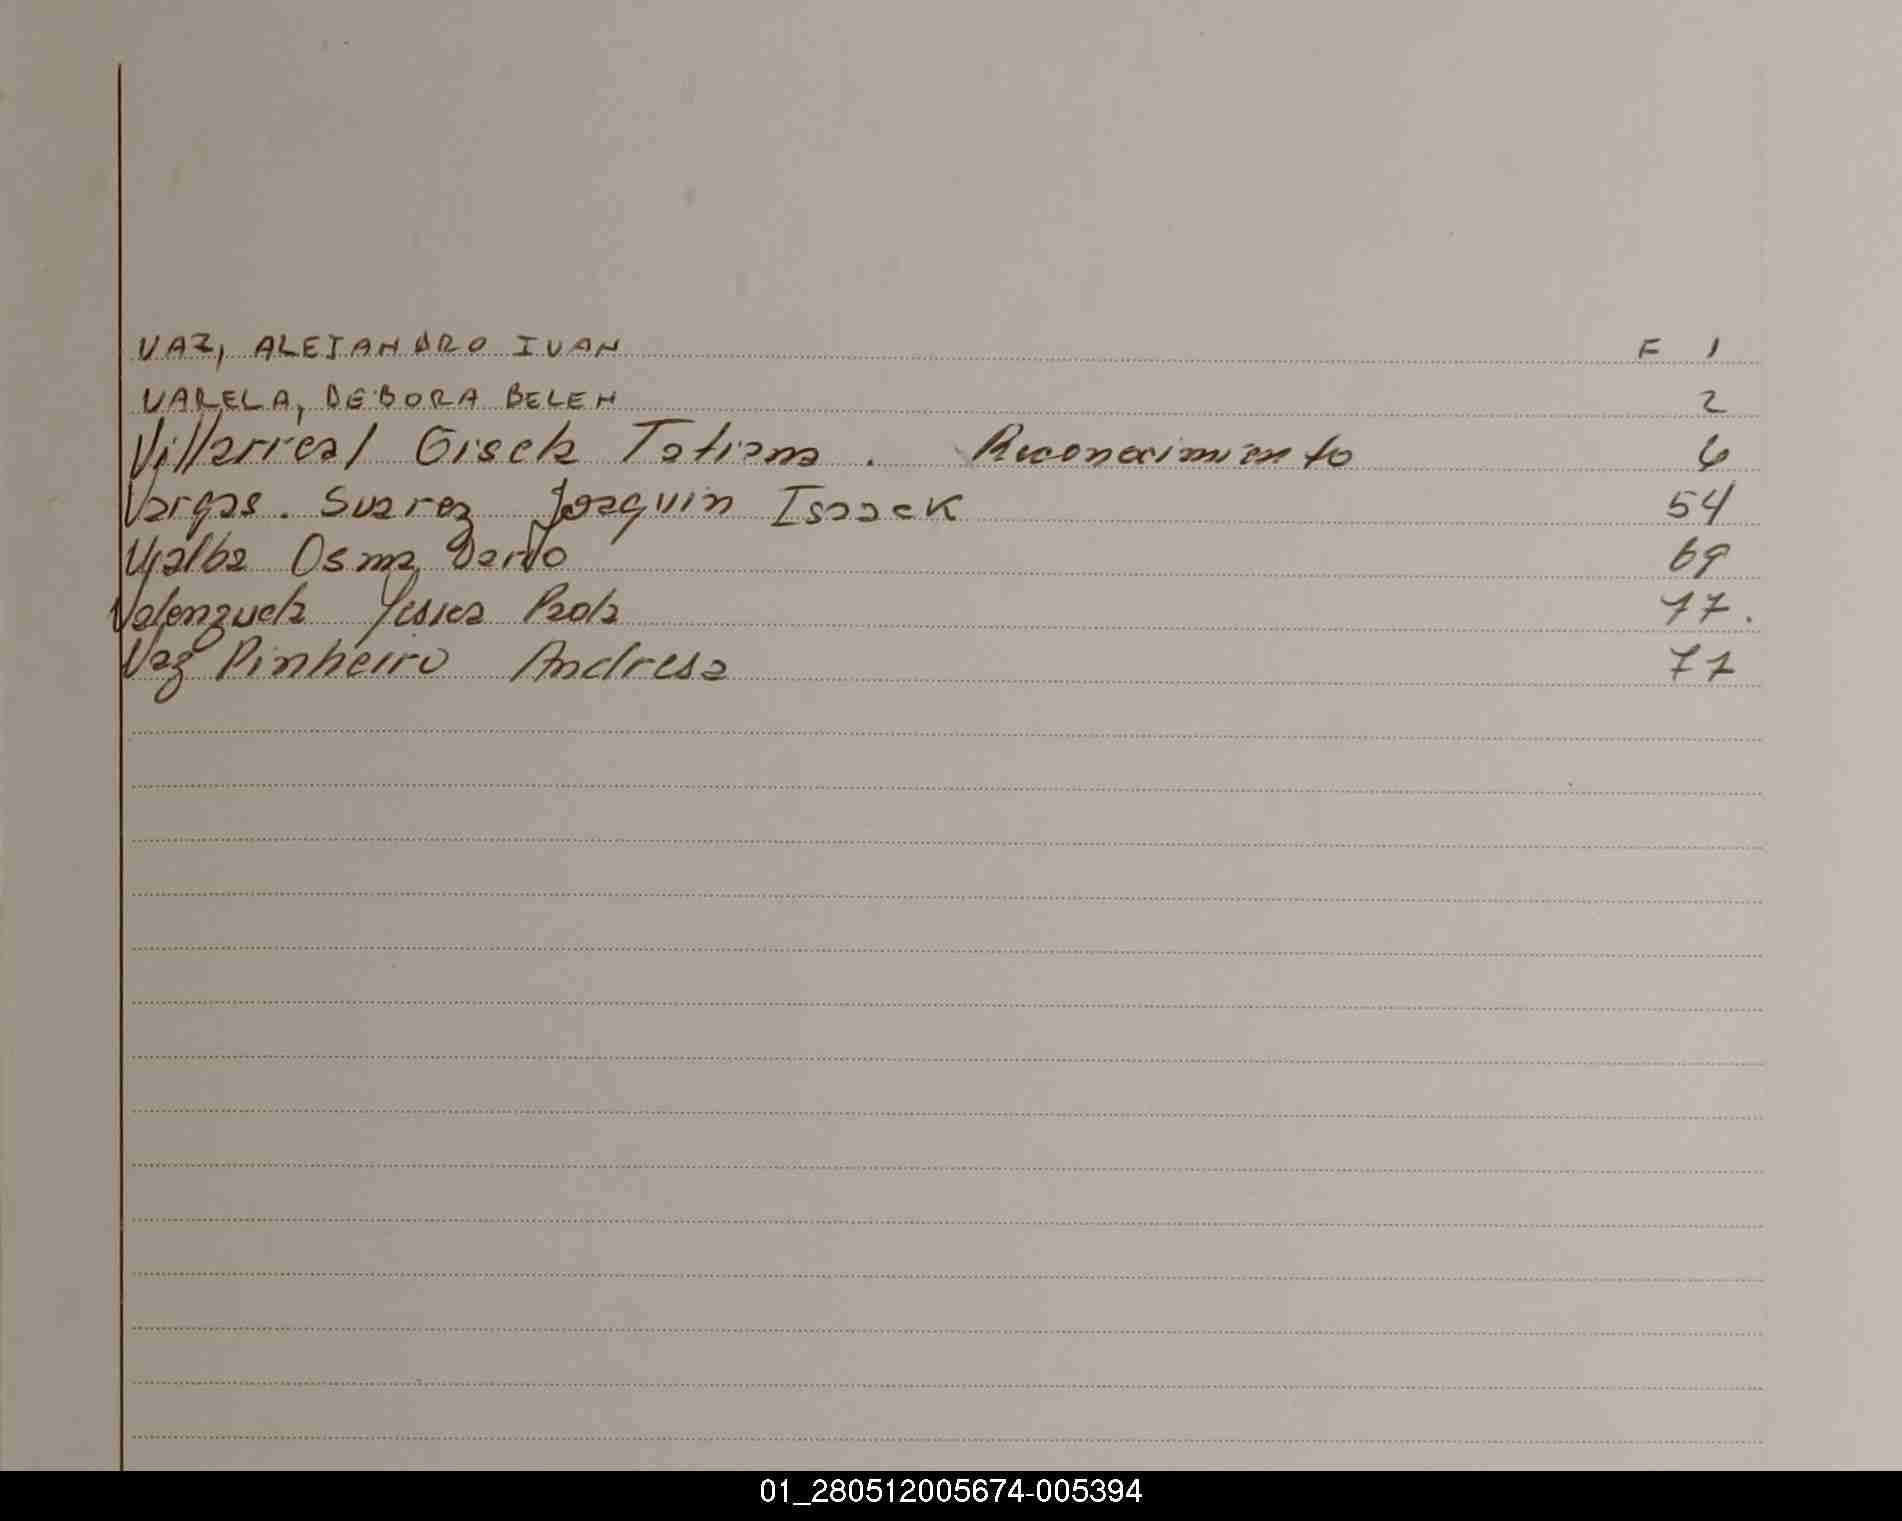 VAZ, ALEJANDRO IVAN F 1
VARELA, DEBORA BELEN 2
Villarreal Gisela Tatiana. Reconocimiento 6
Vargas. Suarez Joaquin Isaack 54
Osma Dario 69
Valenzuela Paola 77.
Vaz Pinheiro Andresa 77
01_280512005674-005394